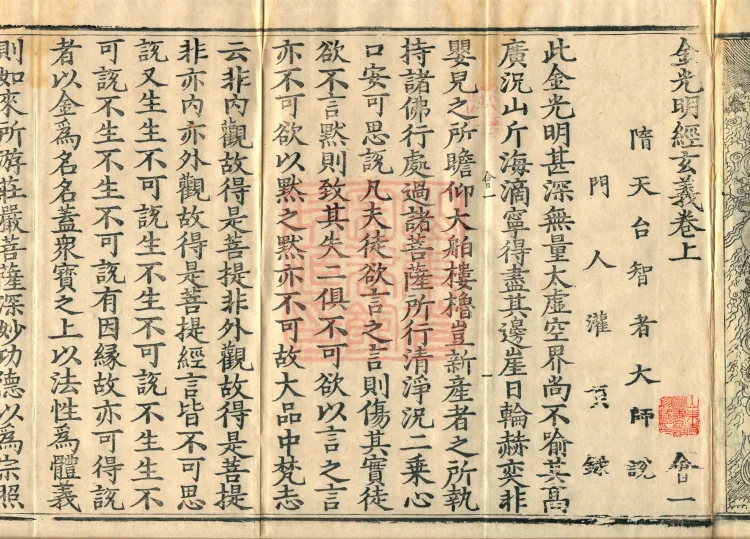 金光明經玄義卷上 會一
隋天台智者大師說
門人灌頂錄
此金光明甚深無量太虛空界尚不喻其高
廣況山斤海滴寧得盡其邊崖日輪赫奕非
會一
嬰兒之所瞻仰大舶樓櫓豈新產者之所執
持諸佛行處過諸菩薩所行清淨況二乘心
口安可思說凡夫徒欲言之言則傷其實徒
欲不言默則致其失二俱不可欲以言之言
亦不可欲以默之默亦不可故大品中梵志
云非內觀故得是菩提非外觀故得是菩提
非亦內亦外觀故得是菩提經言皆不可思
說又生生不可說生不生不可說不生生不
可說不生不生不可說有因緣故亦可得說
者以金為名名蓋眾寶之上以法性為體義
則如來所游莊嚴菩薩深妙功德以為宗照